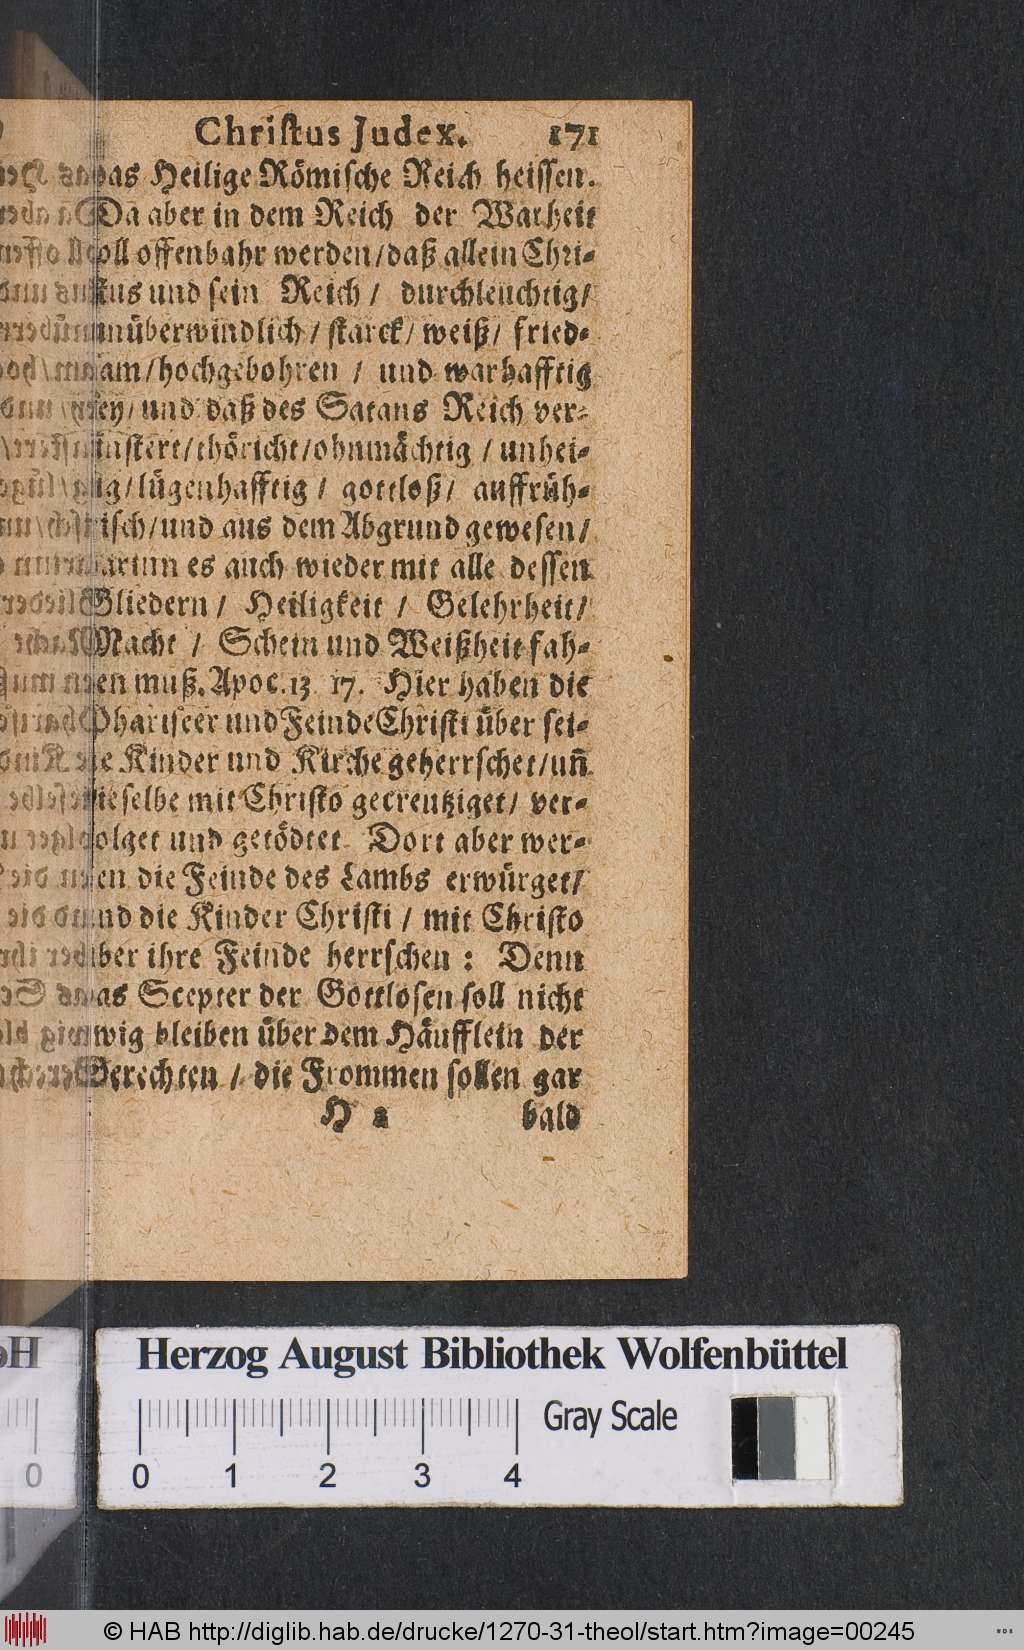 Christus Judex. 171
das Heilige Römische Reich heissen.
Da aber in dem Reich der Warheit
soll offenbahr werden/daß allein Chri-
stus und sein Reich / durchleuchtig/
unüberwindlich / starck/ weiß/ fried-
sam/hochgebohren / und warhafftig
sey/ und daß des Satans Reich ver-
finstert/thöricht/ohnmächtig / unhei-
lig/lügenhafftig / gottloß/ auffrüh-
risch/und aus dem Abgrund gewesen/
warum es auch wieder mit alle dessen
Gliedern / Heiligkeit / Gelehrheit/
Macht / Schein und Weißheit fah-
ren muß. Apoc. 13 17. Hier haben die
Phariseer und Feinde Christi über sei-
ne Kinder und Kirche geherrschet/uñ
dieselbe mit Christo gecreutziget/ ver-
folget und getödtet. Dort aber wer-
den die Feinde des Lambs erwürget/
und die Kinder Christi / mit Christo
über ihre Feinde herrschen : Denn
das Scepter der Gottlosen soll nicht
ewig bleiben über dem Häufflein der
Gerechten / die Frommen sollen gar
H 2 bald
Herzog August Bibliothek Wolfenbüttel
Gray Scale
0 0 1 2 3 4
© HAB http://diglib.hab.de/drucke/1270-31-theol/start.htm?image=00245